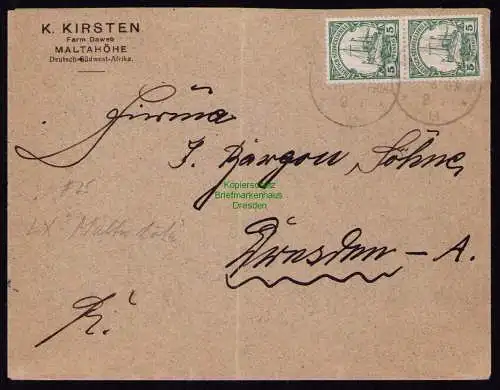 K. KIRSTEN
Farm Daweb
MALTAHÖHE
Deutsch-Südwest-Afrika.
5 5
5 5
Firma
J. Bargou Söhne,
Kopierschutz
Briefmarkenhaus
Dresden
Dresden-A.